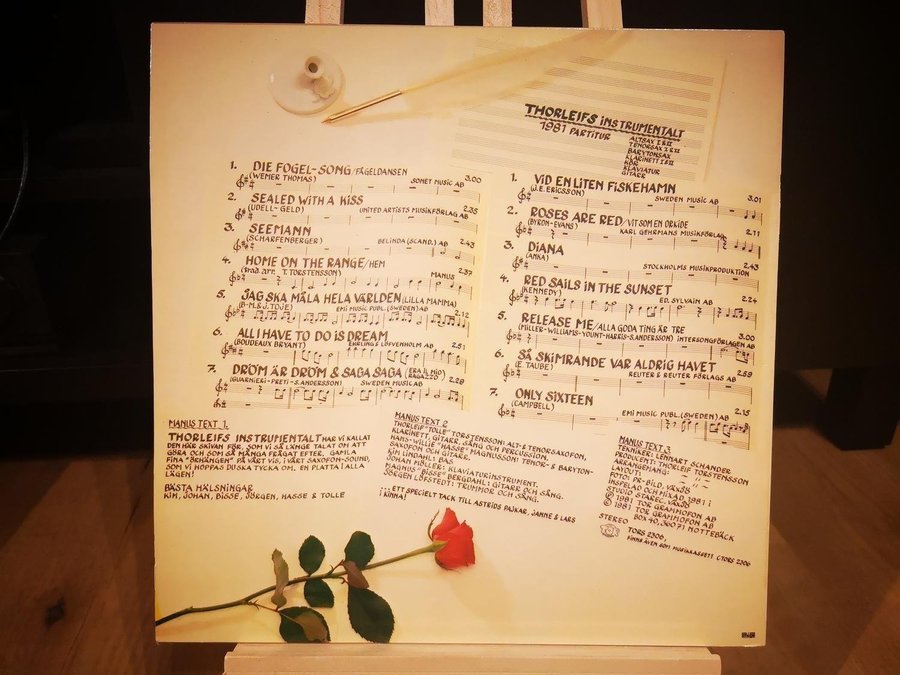 THORLEIFS INSTRUMENTALT
1981 PARTITUR
ALTSAX I & II
TENORSAX I & II
BARYTONSAX
KLARINETT I & II
KLAVIATUR
GITARR
1. DIE FOGEL-SONG/FÅGELDANSEN
(WERNER THOMAS) SONET MUSIC AB 3.00
2. SEALED WITH A KISS
(UDELL-GELD) UNITED ARTISTS MUSIKFÖRLAG AB 2.35
3. SEEMANN
(SCHARFENBERGER) BELINDA (SCAND.) AB 2.43
4. HOME ON THE RANGE/HEM
(TRAD. ARR. T. TORSTENSSON) MANUS 2.37
5. JAG SKA MÅLA HELA VÄRLDEN (LILLA MAMMA)
(B-M.& J. TOJE) EMI MUSIC PUBL. (SWEDEN) AB 2.12
6. ALL I HAVE TO DO IS DREAM
(BOUDEAUX BRYANT) EHRLINGS LÖFVENHOLM AB 2.51
7. DRÖM ÄR DRÖM & SAGA SAGA (ERA IL MIO RAGAZZO)
(GUARNIERI-PRETI-S. ANDERSSON) SWEDEN MUSIC AB 2.28
1. VID EN LITEN FISKEHAMN
(J.E. ERICSSON) SWEDEN MUSIC AB 3.01
2. ROSES ARE RED/VIT SOM EN ORKIDÉ
(BYRON-EVANS) KARL GEHRMANS MUSIKFÖRLAG 2.11
3. DIANA
(ANKA) STOCKHOLMS MUSIKPRODUKTION 2.43
4. RED SAILS IN THE SUNSET
(KENNEDY) ED. SYLVAIN AB 2.24
5. RELEASE ME/ALLA GODA TING ÄR TRE
(MILLER-WILLIAMS-YOUNT-HARRIS-S.ANDERSSON) INTERSONGFÖRLAGEN AB 3.00
6. SÅ SKIMRANDE VAR ALDRIG HAVET
(E. TAUBE) REUTER & REUTER FÖRLAGS AB 2.59
7. ONLY SIXTEEN
(CAMPBELL) EMI MUSIC PUBL. (SWEDEN) AB 2.15
MANUS TEXT 1.
THORLEIFS INSTRUMENTALT HAR VI KALLAT
DEN HÄR SKIVAN FÖR, SOM VI SÅ LÄNGE TALAT OM ATT
GÖRA OCH SOM SÅ MÅNGA FRÅGAT EFTER, GAMLA
FINA "ÖRHÄNGEN" PÅ VÅRT VIS, I VÅRT SAXOFON-SOUND,
SOM VI HOPPAS DU SKA TYCKA OM, EN PLATTA I ALLA
LÄGEN!
BÄSTA HÄLSNINGAR
KIM, JOHAN, BISSE, JÖRGEN, HASSE & TOLLE
MANUS TEXT 2
THORLEIF "TOLLE" TORSTENSSON: ALT- & TENORSAXOFON,
KLARINETT, GITARR, SÅNG OCH PERCUSSION.
HANS-WILLIE "HASSE" MAGNUSSON: TENOR- & BARYTON-
SAXOFON OCH GITARR.
KIM LINDAHL: BAS.
JOHAN MÖLLER: KLAVIATURINSTRUMENT.
MAGNUS "BISSE" BERGDAHL: GITARR OCH SÅNG.
JÖRGEN LÖFSTEDT: TRUMMOR OCH SÅNG.
¡¡¡ETT SPECIELT TACK TILL ASTRIDS PAJKAR, JANNE & LARS
I KINNA!
MANUS TEXT 3
TEKNIKER: LENNART SCHANDER
PRODUCENT: THORLEIF TORSTENSSON
ARRANGEMANG: -"-
LAYOUT: -"-
FOTO: PR-BILD, VÄXJÖ
INSPELAD OCH MIXAD 1981 I
STUDIO STAREC, VÄXJÖ
℗ 1981 TOR GRAMMOFON AB
© 1981 TOR GRAMMOFON AB
BOX 40, 36071 NOTTEBÄCK
STEREO
TORS 2306,
FINNS ÄVEN SOM MUSIKKASSETT CTORS 2306